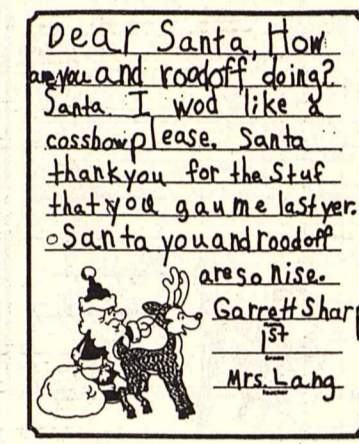 Dear Santa, How
are you and roodoff doing?
Santa I wod like a
cossbow please. Santa
thank you for the Stuf
that you gau me last yer.
Santa you and roodoff
are so nise.
Garrett Shar
1st
Grade
Mrs. Lang
teacher